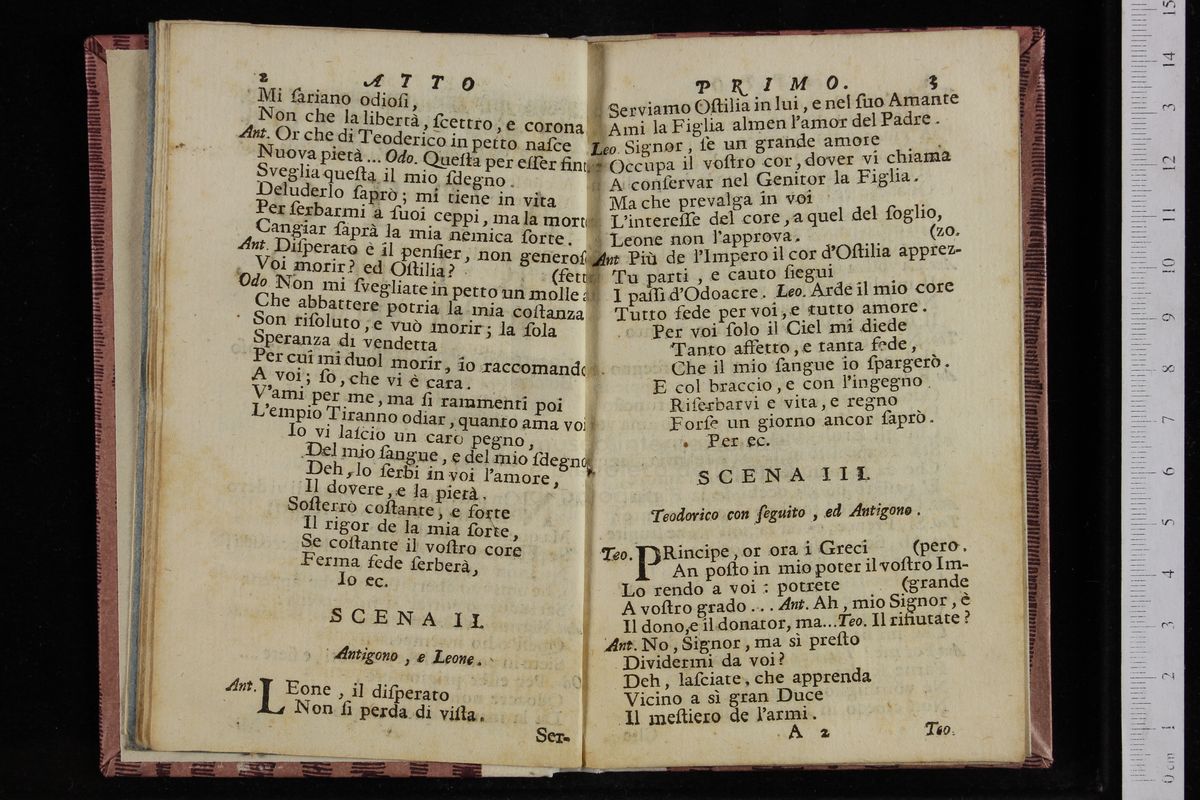 2 ATTO
Mi ſariano odioſi,
Non che la libertà, ſcettro, e corona
Ant. Or che di Teoderico in petto naſce
Nuova pietà ... Odo. Queſta per eſſer
Sveglia queſta il mio ſdegno.
Deluderlo ſaprò; mi tiene in vita
Per ſerbarmi a ſuoi ceppi, ma la
Cangiar ſaprà la mia nemica ſorte.
Ant. Diſperato è il penſier, non
Voi morir? ed Oſtilia?
Odo Non mi ſvegliate in petto un molle
Che abbattere potria la mia coſtanza
Son riſoluto, e vuò morir; la ſola
Speranza di vendetta
Per cui mi duol morir, io
A voi; ſo, che vi è cara.
V'ami per me, ma ſi rammenti poi
L'empio Tiranno odiar, quanto ama voi
Io vi laſcio un caro pegno,
Del mio ſangue, e del mio ſdegno
Deh, lo ſerbi in voi l'amore,
Il dovere, e la pietà.
Soſterrò coſtante, e forte
Il rigor de la mia ſorte,
Se coſtante il voſtro core
Ferma fede ſerberà,
Io ec.
SCENA II.
Antigono, e Leone.
Ant. LEone, il diſperato
Non ſi perda di viſta.
Ser-
PRIMO. 3
Serviamo Oſtilia in lui, e nel ſuo Amante
Ami la Figlia almen l'amor del Padre.
Leo. Signor, ſe un grande amore
Occupa il voſtro cor, dover vi chiama
A conſervar nel Genitor la Figlia.
Ma che prevalga in voi
L'intereſſe del core, a quel del ſoglio,
Leone non l'approva. (zo.
Ant Più de l'Impero il cor d'Oſtilia apprez-
Tu parti, e cauto ſiegui
I paſſi d'Odoacre. Leo. Arde il mio core
Tutto fede per voi, e tutto amore.
Per voi ſolo il Ciel mi diede
Tanto affetto, e tanta fede,
Che il mio ſangue io ſpargerò.
E col braccio, e con l'ingegno
Riſerbarvi e vita, e regno
Forſe un giorno ancor ſaprò.
Per ec.
SCENA III.
Teodorico con ſeguito, ed Antigono.
Teo. PRincipe, or ora i Greci (pero.
An poſto in mio poter il voſtro Im-
Lo rendo a voi: potrete (grande
A voſtro grado ... Ant. Ah, mio Signor, è
Il dono, e il donator, ma... Teo. Il rifiutate?
Ant. No, Signor, ma sì preſto
Dividermi da voi?
Deh, laſciate, che apprenda
Vicino a sì gran Duce
Il meſtiero de l'armi.
A 2 Teo.
15
14
3
12
11
10
9
8
7
6
5
4
3
2
1
0 cm